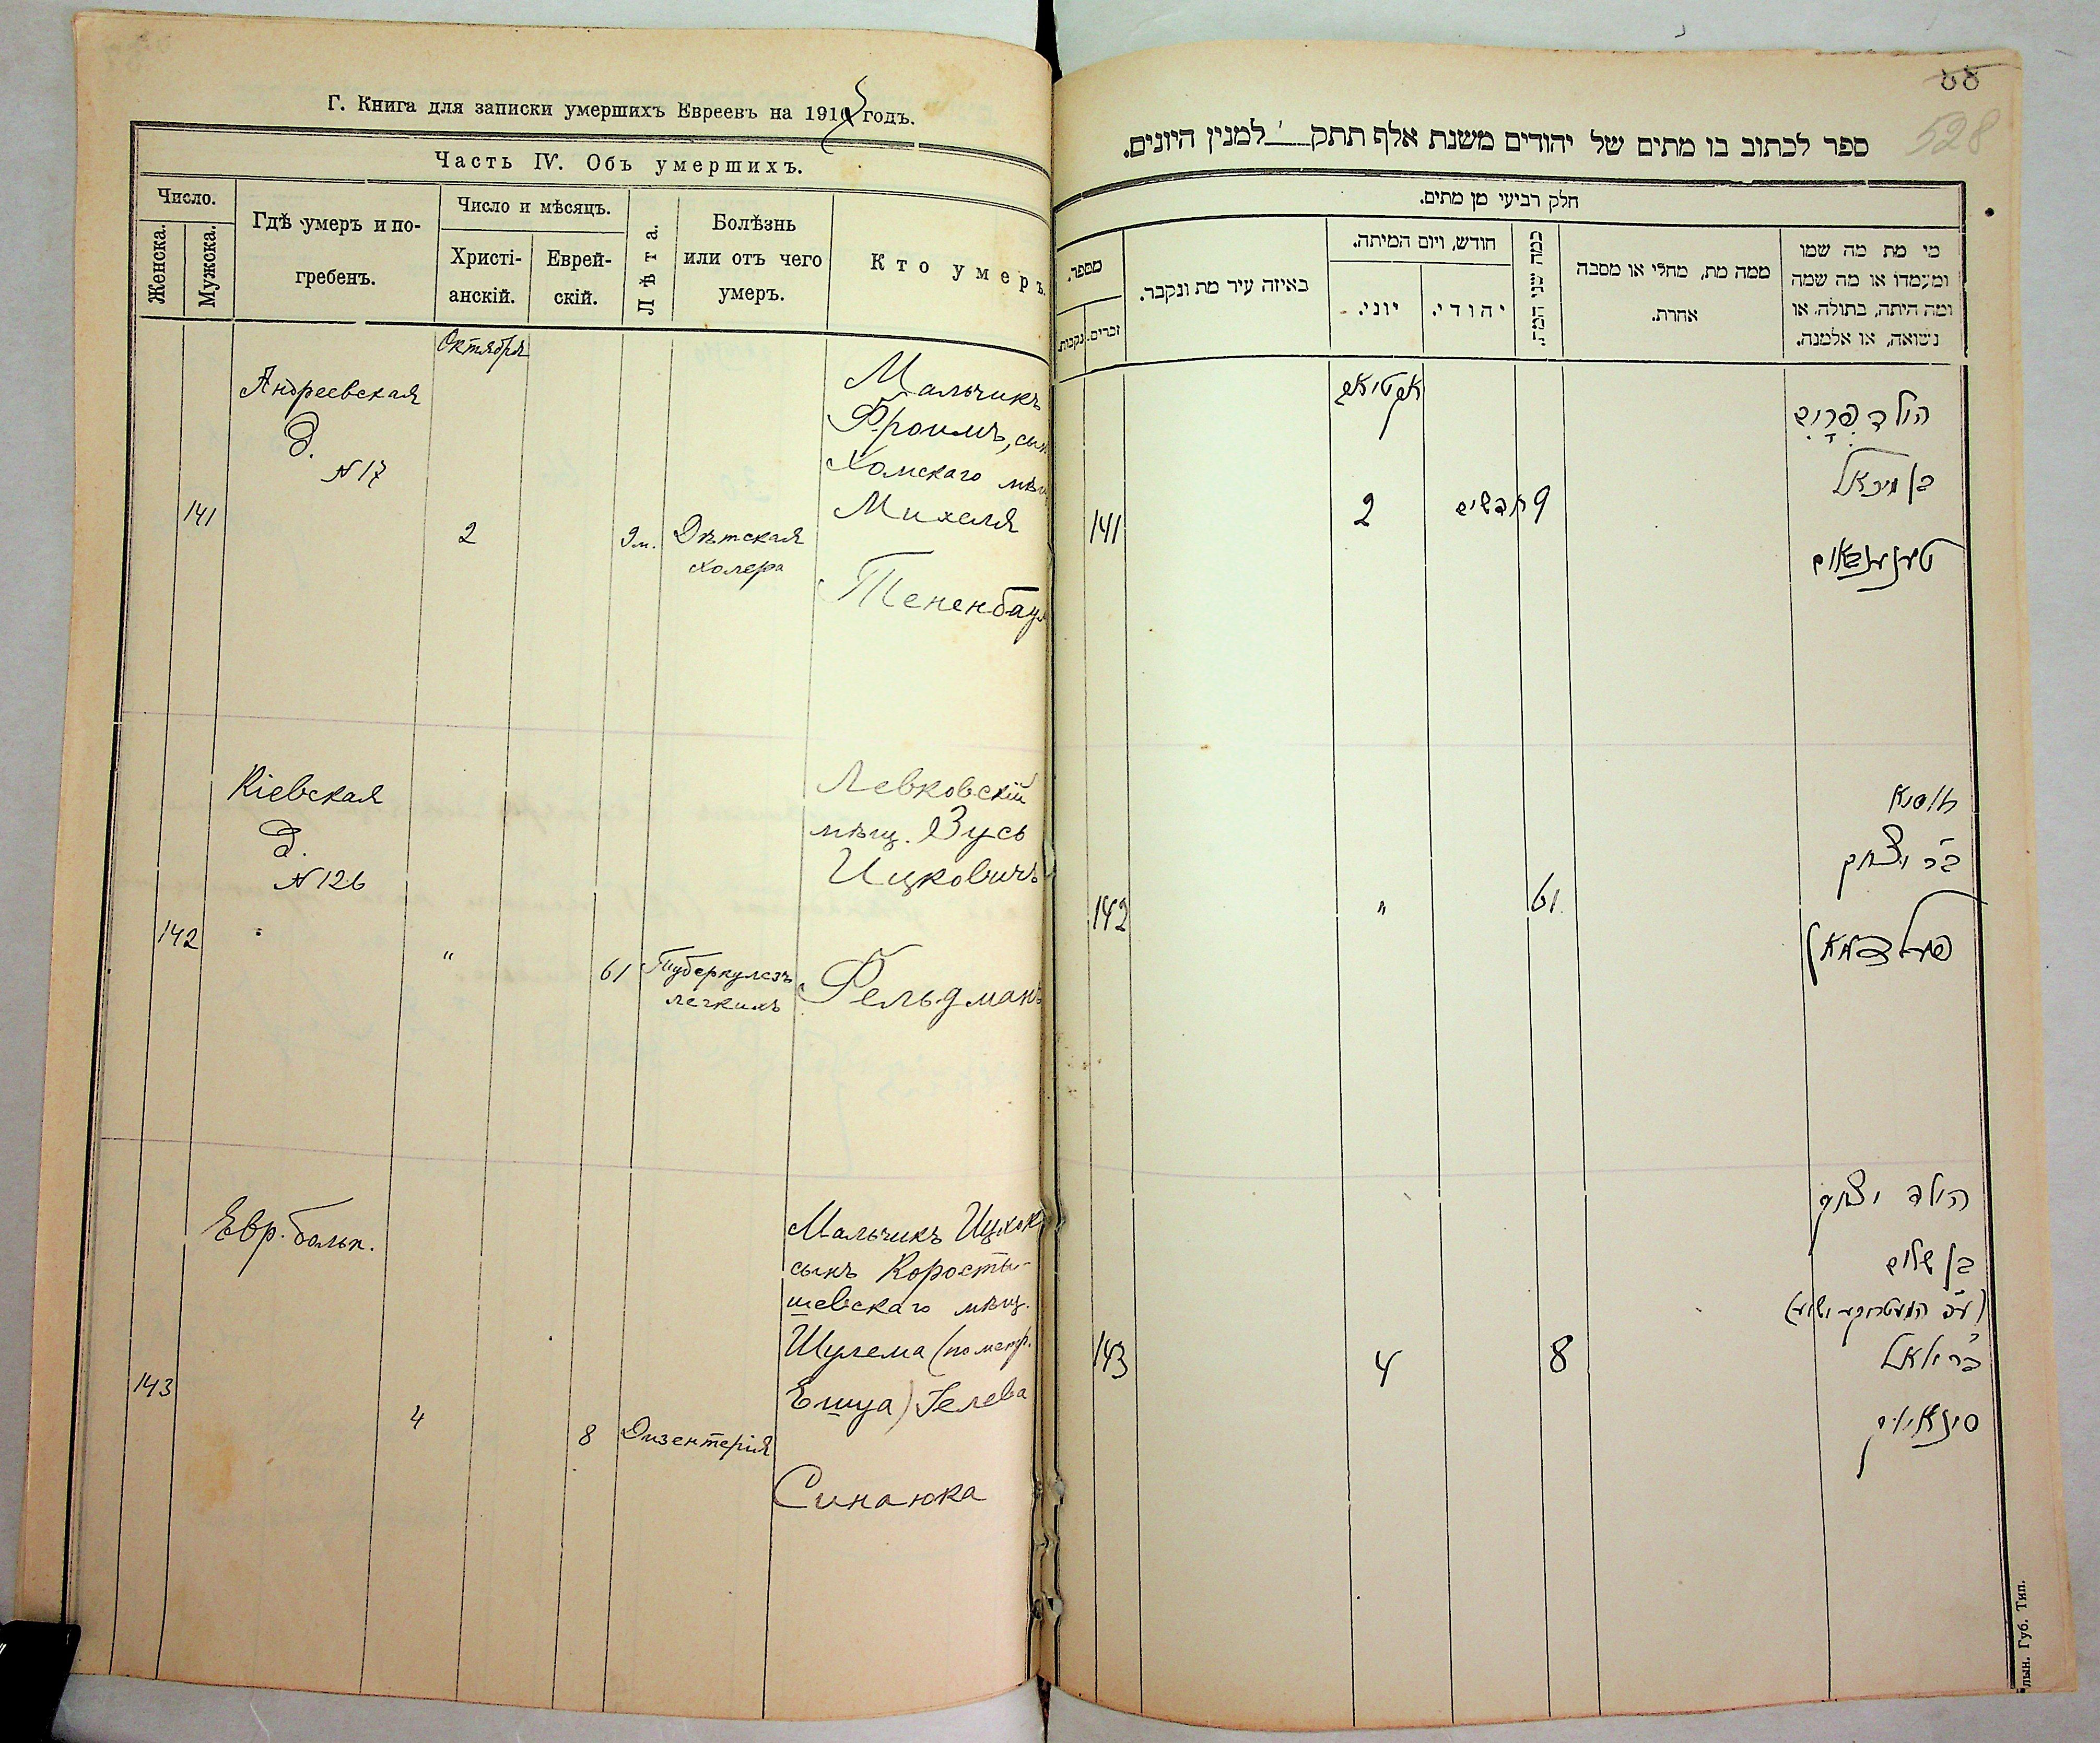 Г. Книга для записки умершихъ Евреевъ на 191 годъ.
Часть IV. Объ умершихъ.
Число.
Женска.
Мужска.
Гдѣ умеръ и по-
гребенъ.
Число и мѣсяцъ.
Христі-
анскій.
Еврей-
скій.
Лѣта.
Болѣзнь
или отъ чего
умеръ.
Кто умеръ.
Октября
Андреевская
д.
N 17
141
2
9 м.
Дѣтская
холера
Мальчикъ
Фроимъ, сын
Хомскаго мѣщ
Михеля
Тененбаум
Кіевская
д.
N 126
142
"
61
Туберкулезъ
легкихъ
Левковскій
мѣщ. Зусь
Ицковичъ
Фельдманъ
Евр. больн.
143
4
8
Дизентерія
Мальчикъ Ицхок
сынъ Коросты-
шевскаго мѣщ.
Шулема (по метр.
Ешуа) Іелева
Синаюка
55
528
ספר לכתוב בו מתים של יהודים משנת אלף תתק' למנין היונים.
חלק רביעי מן מתים.
מספר.
נקבות.
זכרים.
באיזה עיר מת ונקבר.
חודש, ויום המיתה.
יוני.
יהודי.
כמה שני המת.
ממה מת, מחלי או מסבה
אחרת.
מי מת מה שמו
ומעמדו או מה שמה
ומה היתה, בתולה, או
נשואה, או אלמנה.
141
2
9 חדשים
הילד פרים
בן מיכאל
טענענבאום
142
"
61
זוסיא
ב"ר יצחק
פעלדמאן
143
4
8
הילד יצחק
בן שלום
סינאיוק
лын. Губ. Тип.